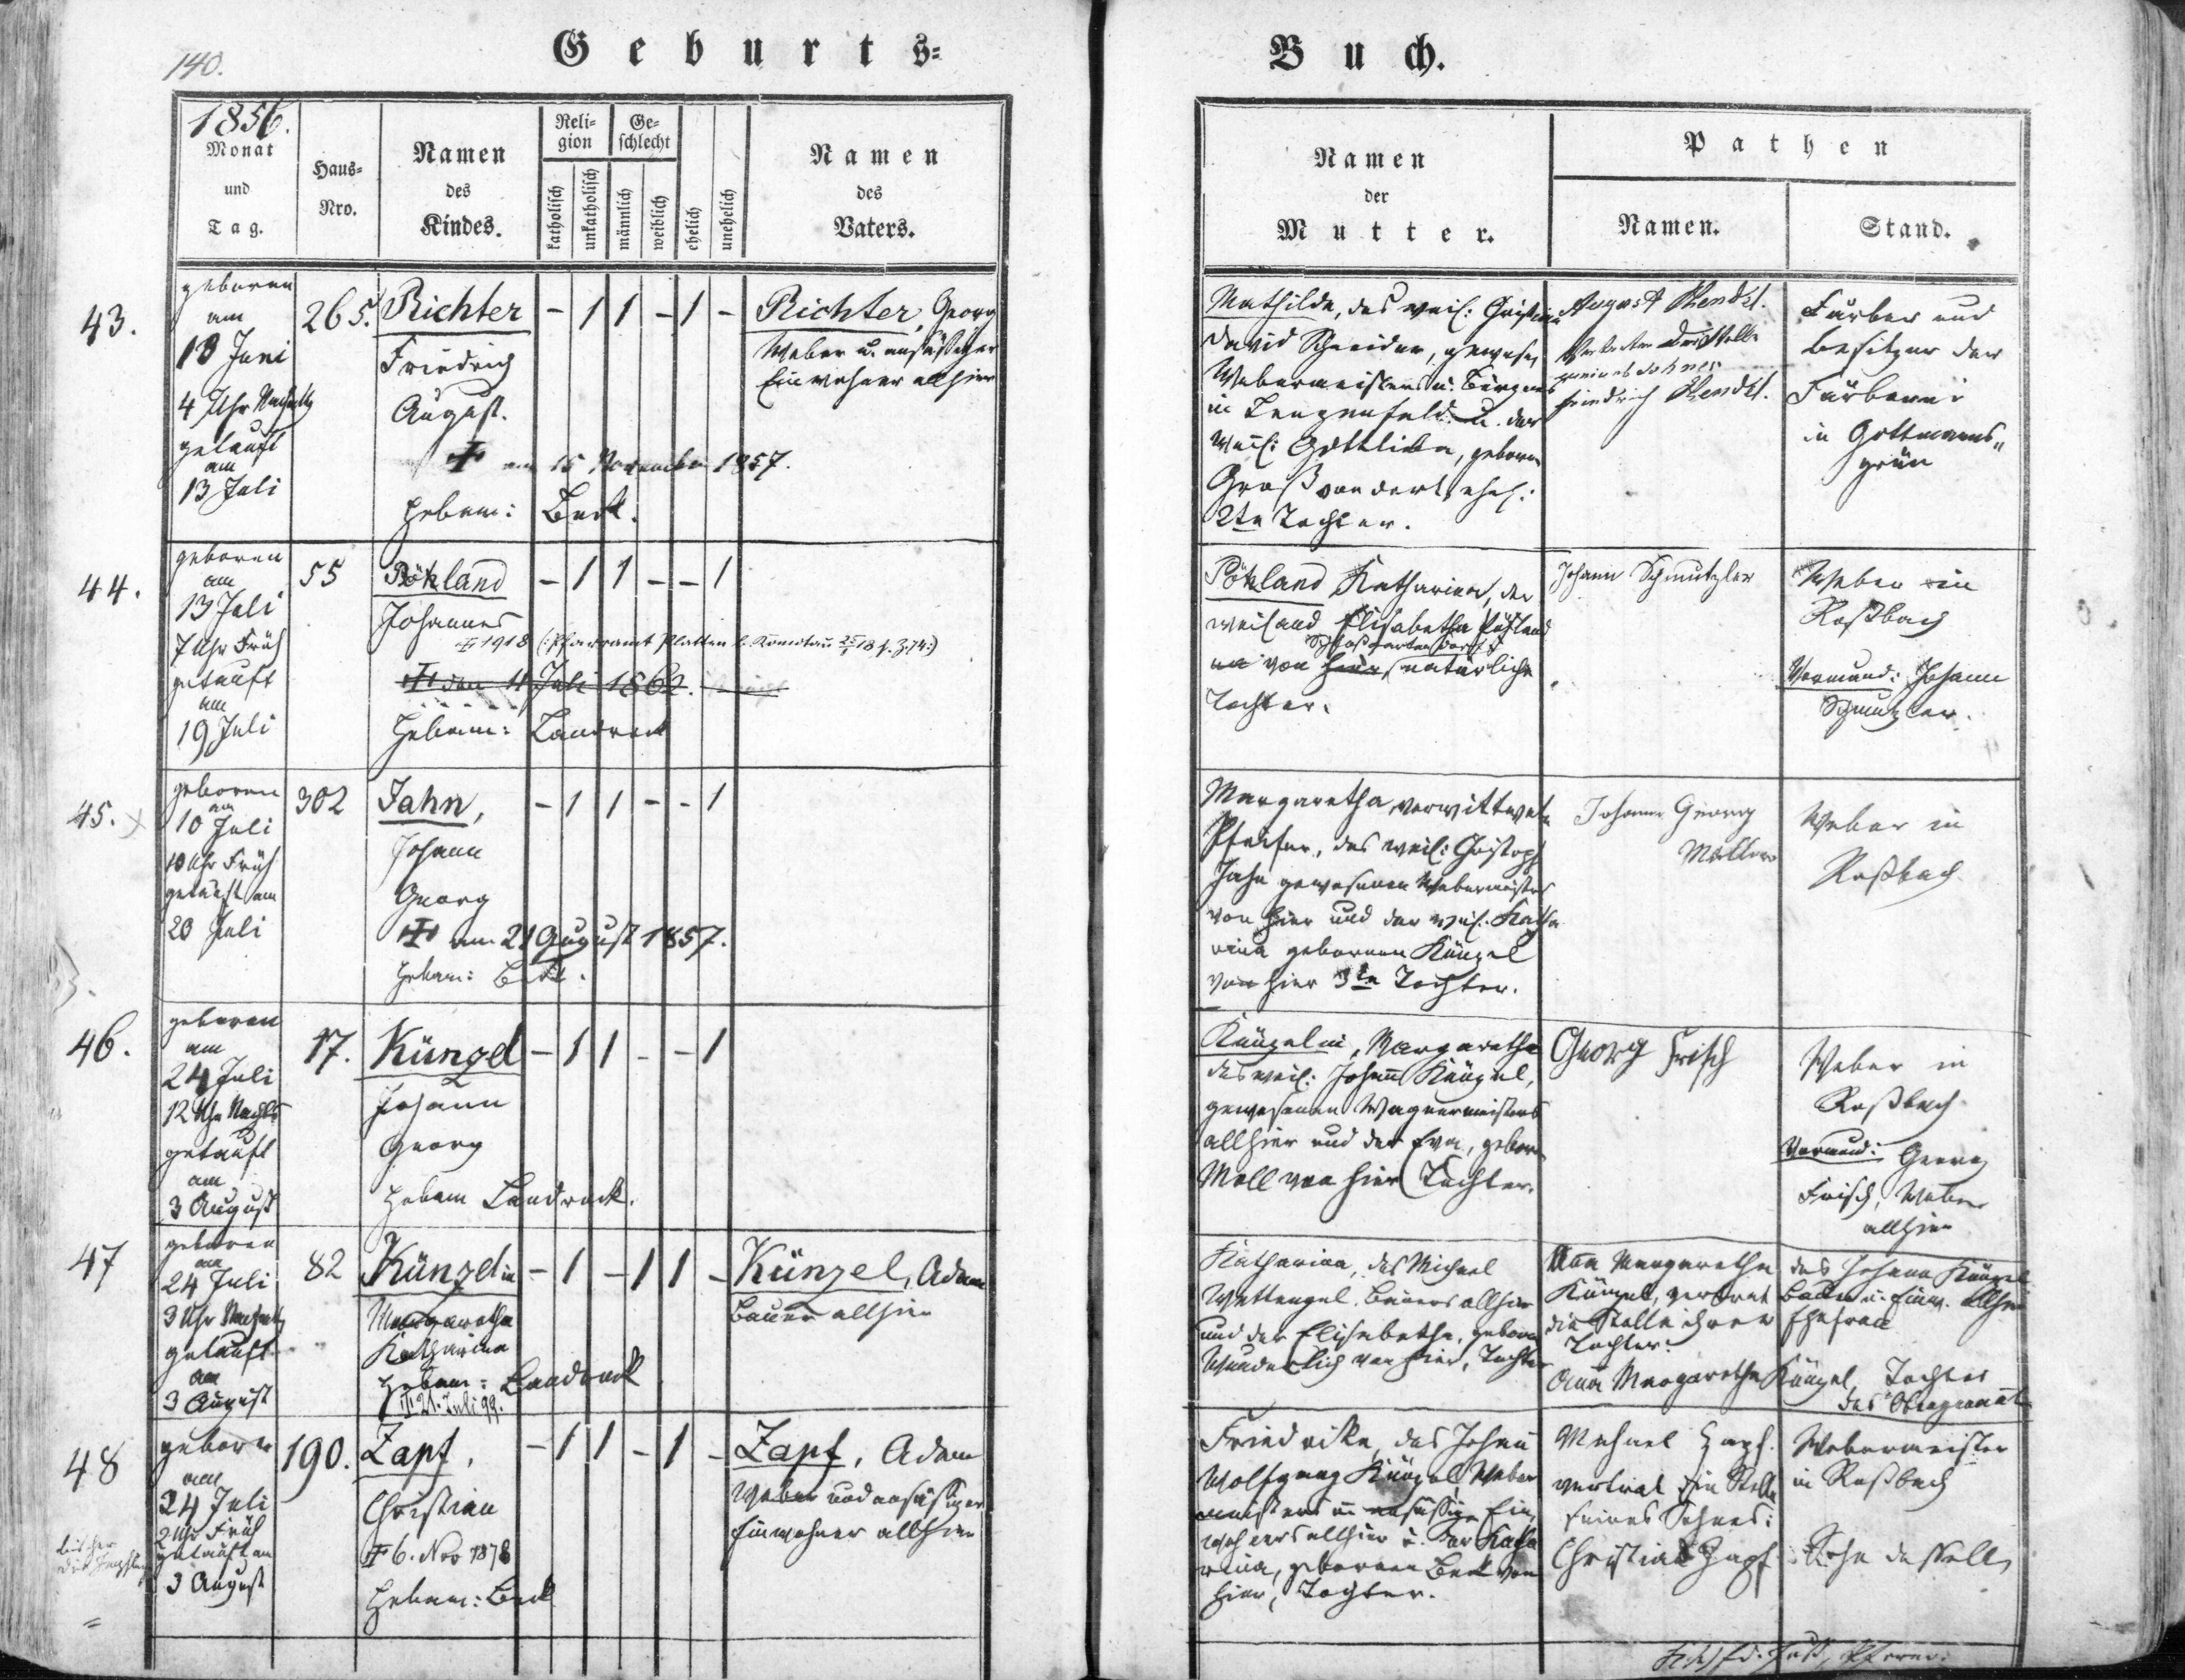 140.
Geburts=
Buch.
1856.
Monat
und
Tag.
Haus=
Nro.
Namen
des
Kindes.
Reli=
gion
katholisch
unkatholisch
Ge=
schlecht
männlich
weiblich
ehelich
unehelich
Namen
des
Vaters.
Namen
der
Mutter.
Pathen
Namen.
Stand.
43.
geboren
am
13 Juni
4 Uhr Nachmittg
getauft
am
13 Juli
265.
Richter
Friedrich
August.
am 15 November 1857.
Hebam: Beck.
- 1 1 - 1 -
Richter, Georg
Weber u. ansäßiger
Einwohner allhier
Mathilde, des weil: Christian
David Schneider, gewese.
Webermeisters u. Bürgers
in Lengenfeld u. der
weil: Gottlieba, geborne
Groß von dort, ehel:
2te Tochter.
August Kendel.
die Stelle
seines Sohnes
Friedrich Kendel.
Färber und
Besitzer der
Färberei
in Gottmanns„
grün
44.
geboren
am
13 Juli
7 Uhr Früh
getauft
am
19 Juli
55
Pökland
Johannes
1918 (: Pfarramt Platten b. Komotau 25/1 18 p. Z. 74:)
den 4 Juli 1862.
Hebam: Landrock
- 1 1 - - 1
Pökland Katharina, der
weiland Elisabetha Pökland
von hier, natürliche
Tochter.
Johann Schmutzler
Weber in
Roßbach
Vormund: Johann
Schmutzler.
45.
geboren
am
10 Juli
10 Uhr Früh
getauft am
20 Juli
302
Jahn,
Johann
Georg
am 21 August 1857.
Hebam: Beck.
- 1 1 - - 1
Margaretha, verwittwete
Pfeifer, des weil: Christoph
Jahn gewesenen Webermeisters
von hier und der weil. Katha
rina gebornen Künzel
von hier 3te Tochter.
Johann Georg
Müller
Weber in
Roßbach
46.
geboren
am
24 Juli
12 Uhr Nachts
getauft
am
3 August
17.
Künzel
Johann
Georg
Hebam Landrock.
- 1 1 - - 1
Künzelin, Margaretha
des weil: Johann Künzel,
gewesenen Wagnermeisters
allhier und der Eva, geborn
Moll von hier Tochter.
Georg Frisch
Weber in
Roßbach
Vormund: Georg
Frisch, Weber
allhier
47
geboren
am
24 Juli
3 Uhr Nachmittg
getauft
am
3 August
82
Künzelin
Margaretha
Katharina
Hebam: Landrock
21. Juli 99.
- 1 - 1 1 -
Künzel, Adam
Bauer allhier
Katharina, des Michael
Wettengel, Bauers allhier
und der Elisabetha, geborne
Wunderlich von hier, Tochter
Anna Margaretha
Künzel, vertrat
die Stelle ihrer
Tochter:
Anna Margaretha Künzel
des Johann Künzel
Bauer u. Einw. allhier
Ehefrau
Tochter
des Obengenannt
48
geboren
am
24 Juli
2 Uhr Früh
getauft am
3 August
190.
Zapf,
Christian
6. Nov 1878
Hebam: Beck
- 1 1 - 1 -
Zapf, Adam
Weber und ansäßiger
Einwohner allhier
Friedrika, des Johann
Wolfgang Künzel, Weber
meisters u. ansäßige Ein„
wohners allhier u. der Katha
rina, gebornen Beck von
hier, Tochter.
Michael Zapf.
vertrat die Stelle
seines Sohnes:
Christian Zapf
Webermeister
in Roßbach
Sohn desselb